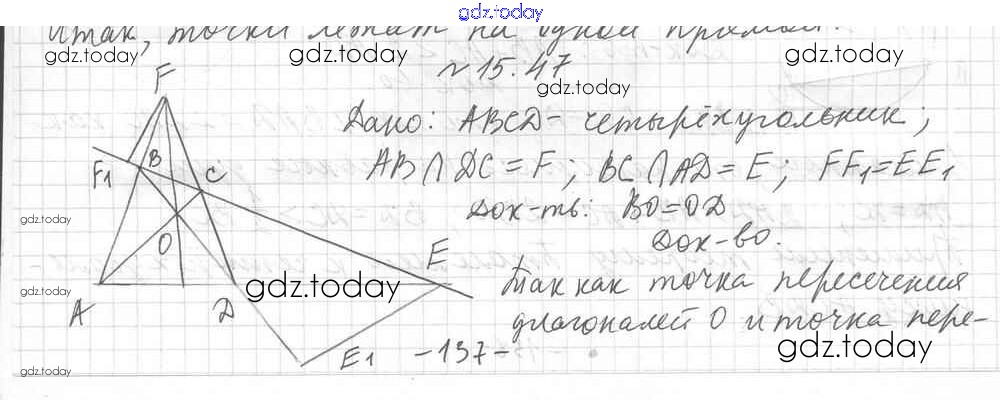 gdz.today
итак, точки лежат на одной прямой.
gdz.today
gdz.today
gdz.today
№ 15.47
gdz.today
Дано: ABCD - четырёхугольник;
AB ∩ DC = F; BC ∩ AD = E; FF₁ = EE₁
Док-ть: BO = OD
Док-во.
Так как точка пересечения
диагоналей O и точка пере-
F
F₁
B
C
gdz.today
O
E
A
D
gdz.today
E₁
-137-
gdz.today
gdz.today
gdz.today